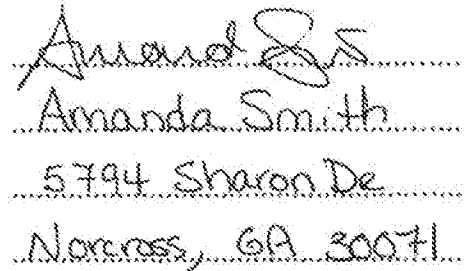 Amanda Smith
5794 Sharon De
Norcross, GA 30071